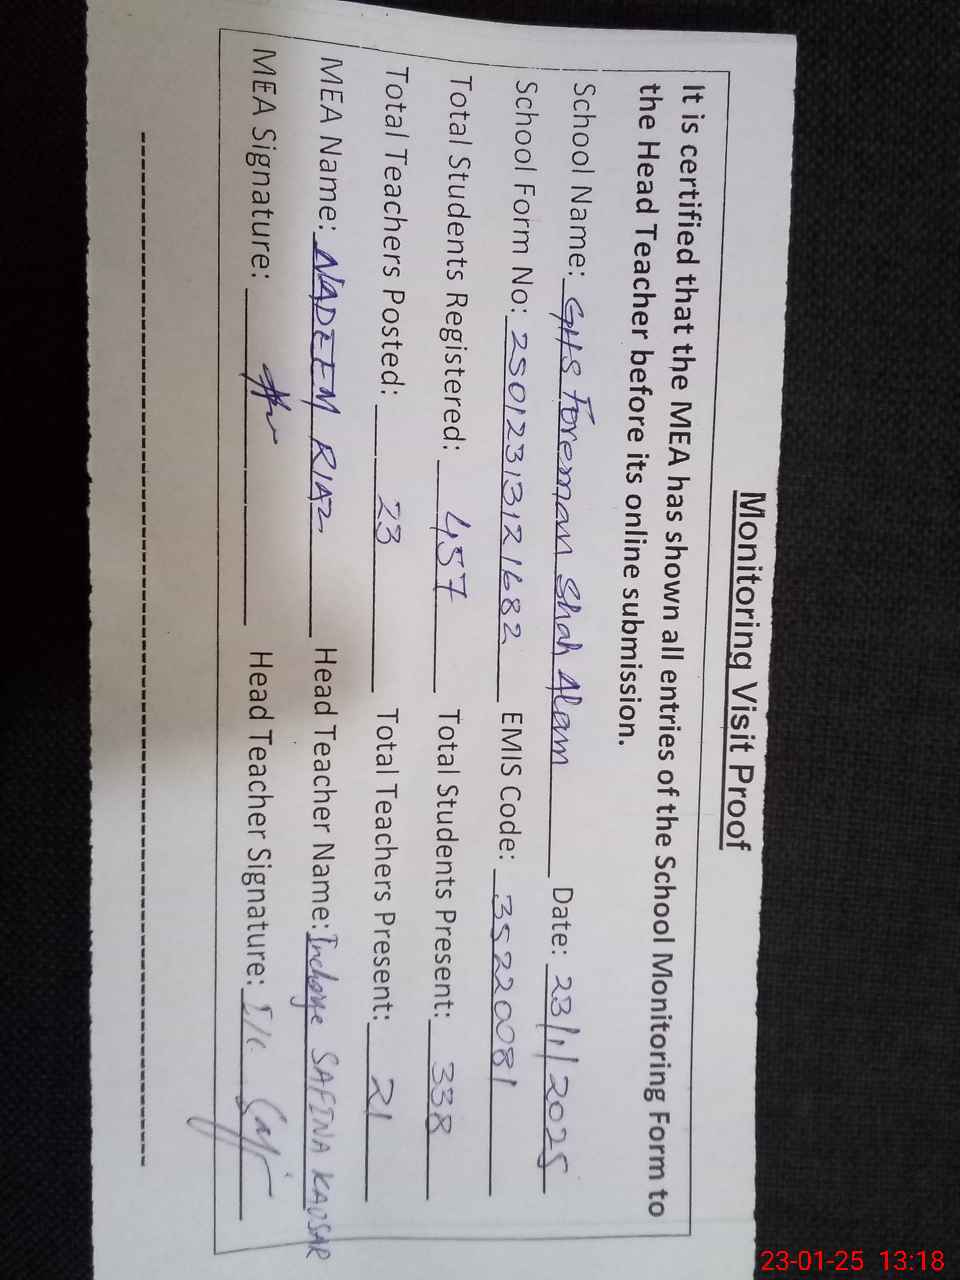 Monitoring Visit Proof
It is certified that the MEA has shown all entries of the School Monitoring Form to
the Head Teacher before its online submission.
School Name: GHS Foreman Shah Alam Date: 23/1/2025
School Form No: 25012313121682 EMIS Code: 35220081
Total Students Registered: 457 Total Students Present: 338
Total Teachers Posted: 23 Total Teachers Present: 21
MEA Name: NADEEM RIAZ Head Teacher Name: Incharge SAFINA KAUSAR
MEA Signature: Head Teacher Signature: I/c
23-01-25 13:18